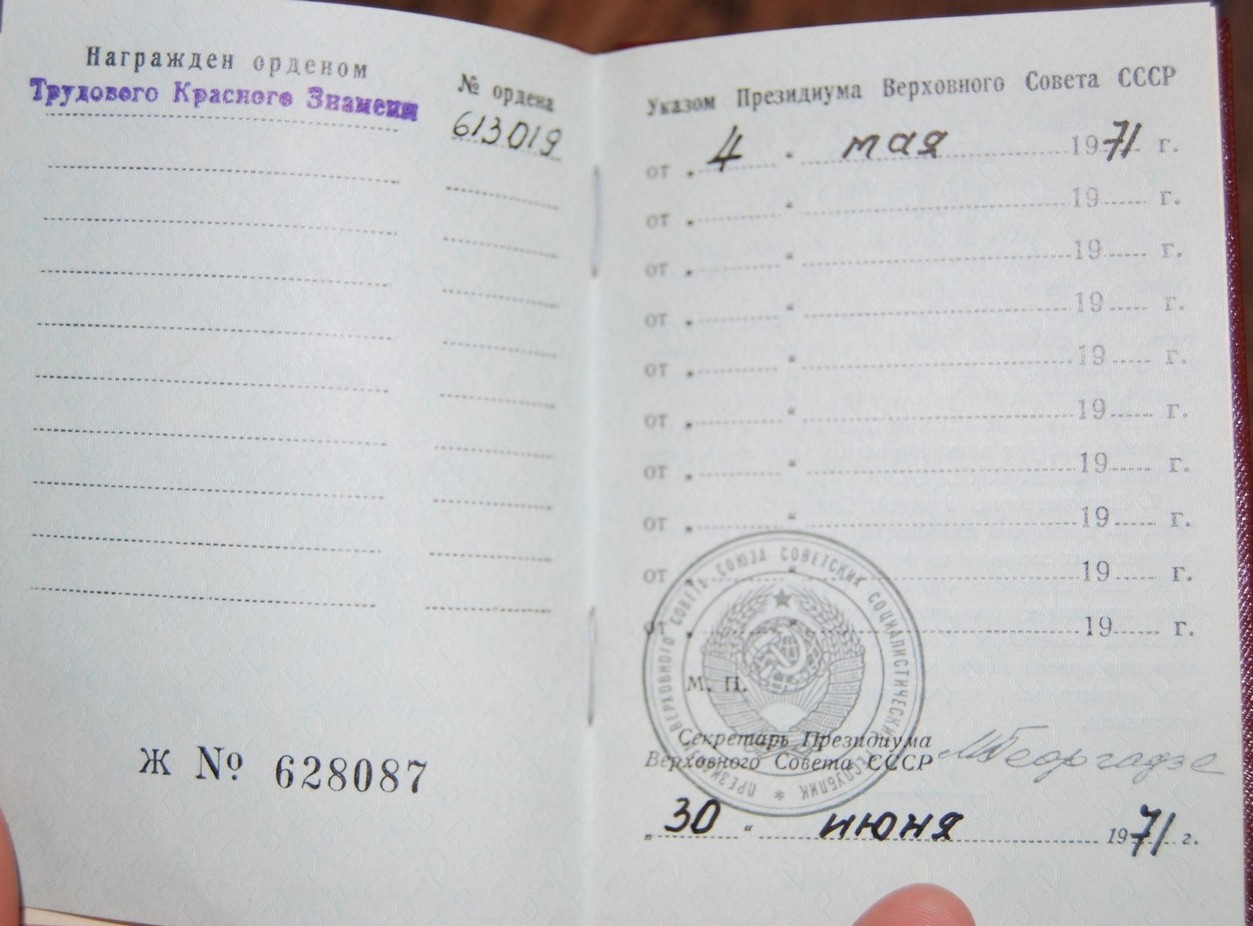 Награжден орденом
Трудового Красного Знамени
№ ордена
613019
Ж № 628087
Указом Президиума Верховного Совета СССР
от „ 4 “ мая 1971 г.
от „ “ 19 г.
от „ “ 19 г.
от „ “ 19 г.
от „ “ 19 г.
от „ “ 19 г.
от „ “ 19 г.
от „ “ 19 г.
от „ “ 19 г.
от „ “ 19 г.
ПРЕЗИДИУМ ВЕРХОВНОГО СОВЕТА СОЮЗА СОВЕТСКИХ СОЦИАЛИСТИЧЕСКИХ РЕСПУБЛИК *
М. П.
Секретарь Президиума
Верховного Совета СССР
МГеоргадзе
„ 30 “ июня 1971 г.